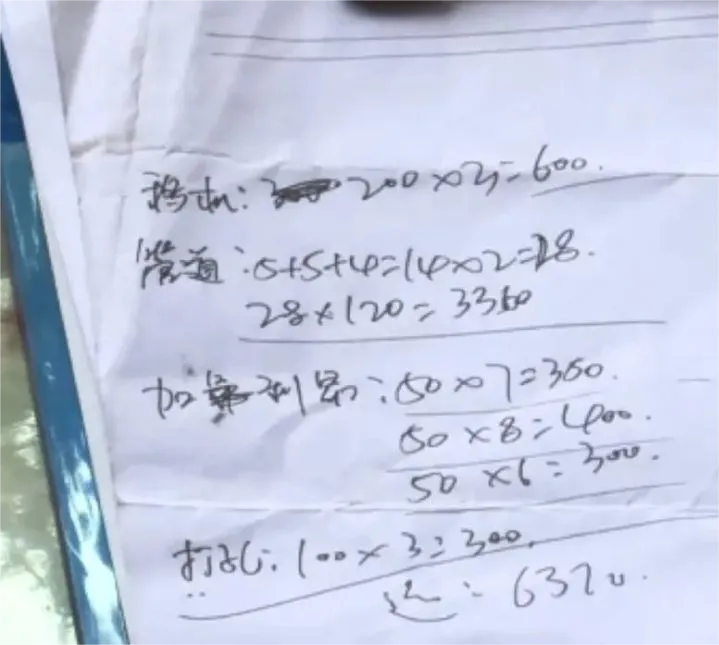 移机: 200×3=600.
管道:5+5+4=14×2=28.
28×120=3360
加氟利昂:50×7=350.
50×8=400.
50×6=300.
打孔:100×3=300.